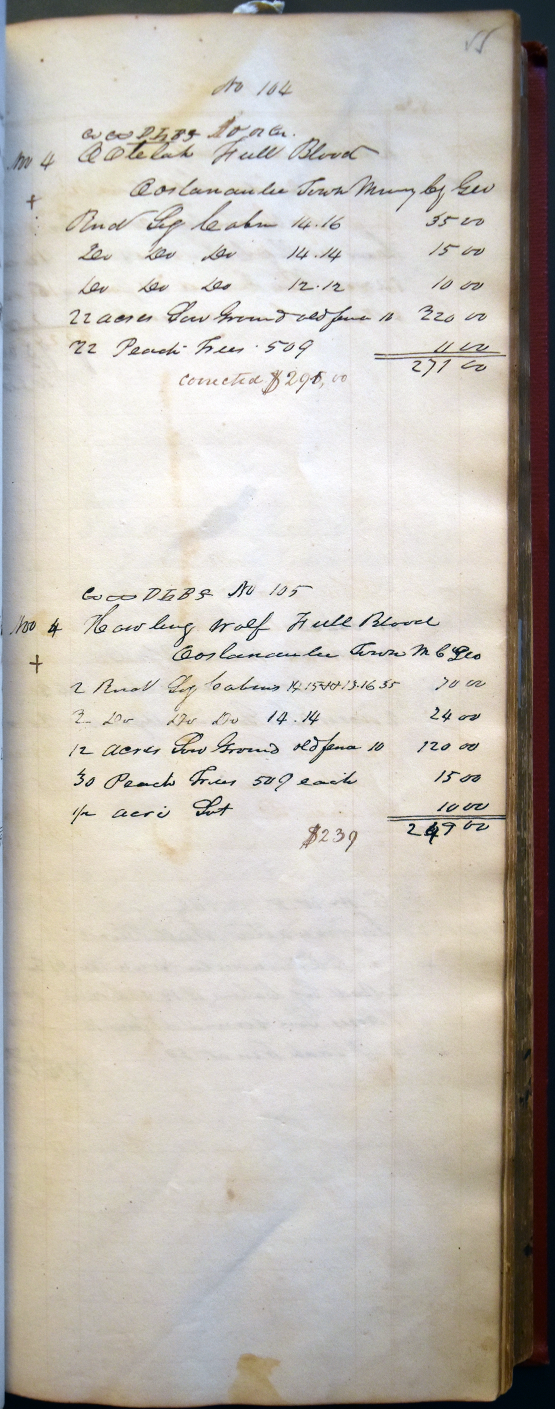 55
No 104
No 4 Full Blood
+ Oostanaulee Town Murry Cy Geo
Rnd Log Cabin 14.16 35 00
Do Do Do 14.14 15 00
Do Do Do 12.12 10 00
22 acres Low Ground old fence 10 220 00
22 Peach Trees 50¢ 11 00
271 00
corrected $291,00
No 105
No 4 Howling Wolf Full Blood
+ Oostanaulee Town M C Geo
2 Rnd Log Cabins 13.16 35 70 00
2 Do Do Do 14.14 24 00
12 acres Low Ground old fence 10 120 00
30 Peach Trees 50¢ each 15 00
1/2 acre Lot 10 00
$239 249 00